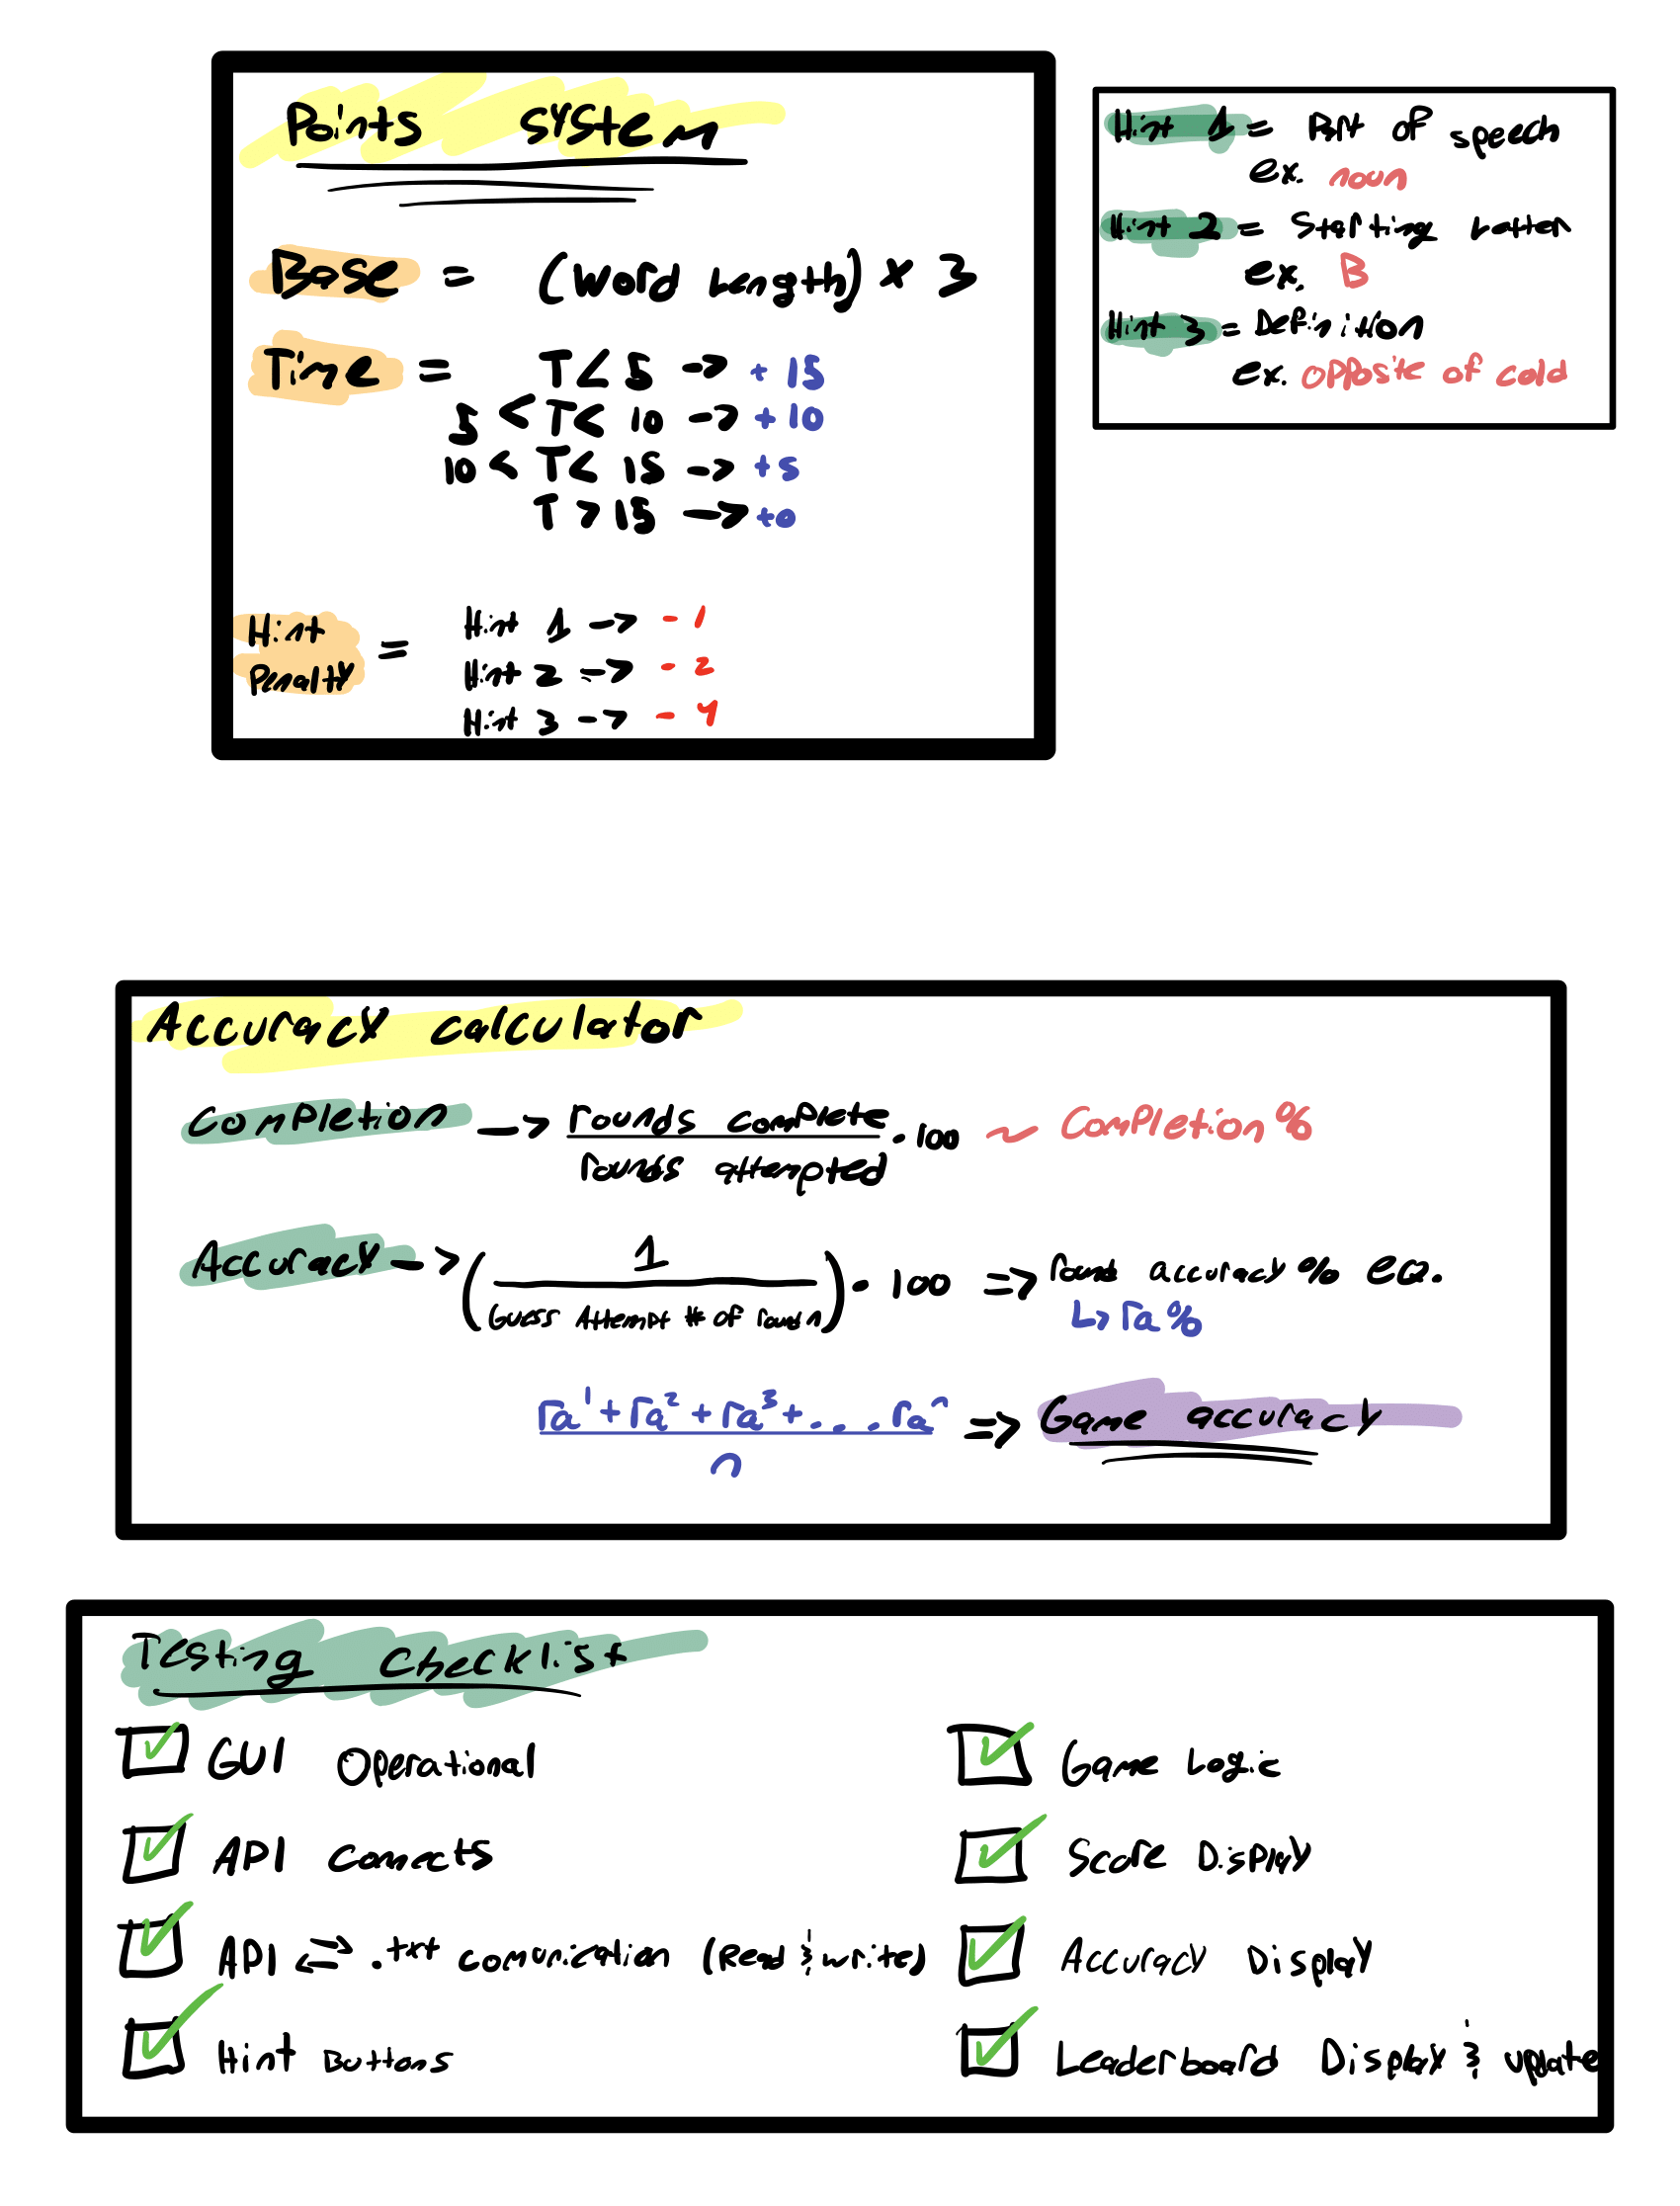 Points System
Base = (Word Length) × 3
Time = T < 5 -> + 15
5 < T < 10 -> + 10
10 < T < 15 -> + 5
T > 15 -> +0
Hint Penalty =
Hint 1 -> - 1
Hint 2 -> - 2
Hint 3 -> - 4
Hint 1 = Part of speech
ex. noun
Hint 2 = Starting Letter
ex. B
Hint 3 = Definition
ex. opposite of cold
Accuracy Calculator
Completion -> rounds complete / rounds attempted · 100 ~ Completion %
Accuracy -> (1 / Guess Attempt # of round n) · 100 => round accuracy % eq.
↳ ra %
ra¹ + ra² + ra³ + .... raⁿ / n => Game accuracy
Testing Checklist
☑ GUI Operational
☑ API Connects
☑ API ⇄ .txt comunication (Read & write)
☑ Hint Buttons
☑ Game Logic
☑ Score Display
☑ Accuracy Display
☑ Leaderboard Display & update